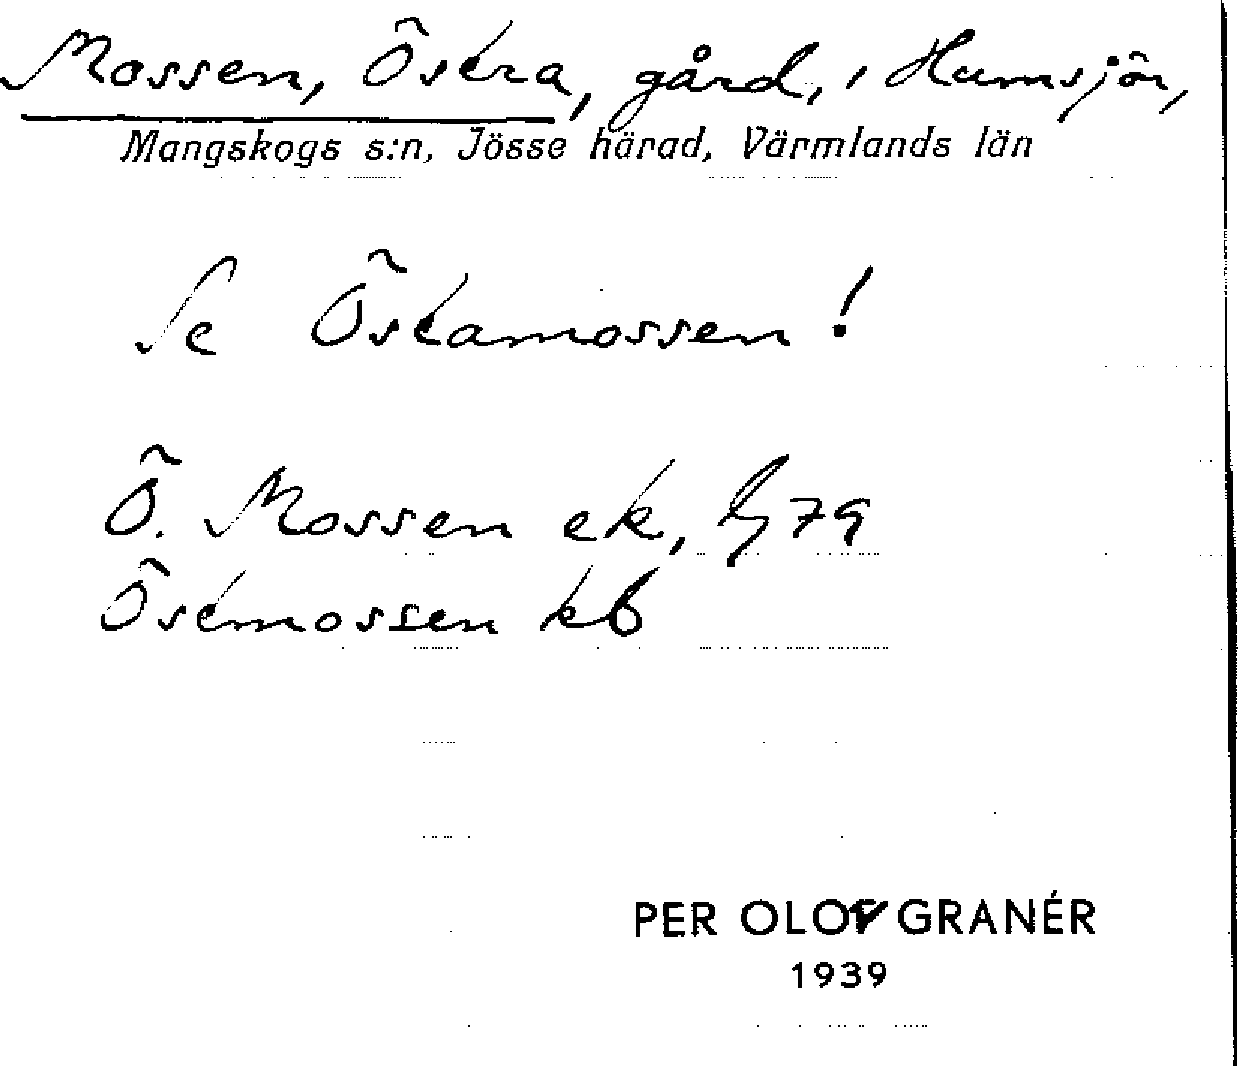 Mossen, Östra, gård, i Humsjön,
Mangskogs s:n, Jösse härad, Värmlands län
Se Östamossen!
Ö. Mossen ek, hj 79
Östmossen kb
PER OLOV GRANÉR
1939